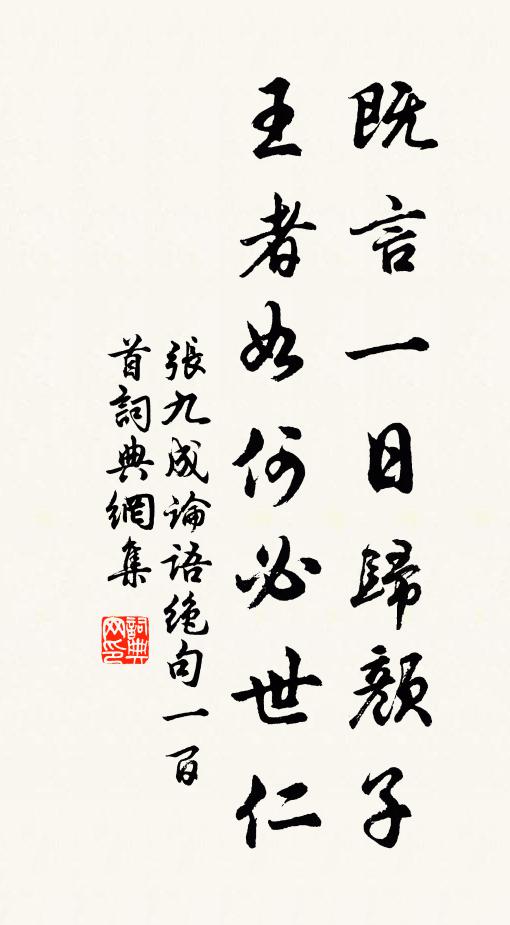 既言一日歸顏子
王者如何必世仁
張九成論語绝句一百
首詞典網集
詞典
网印